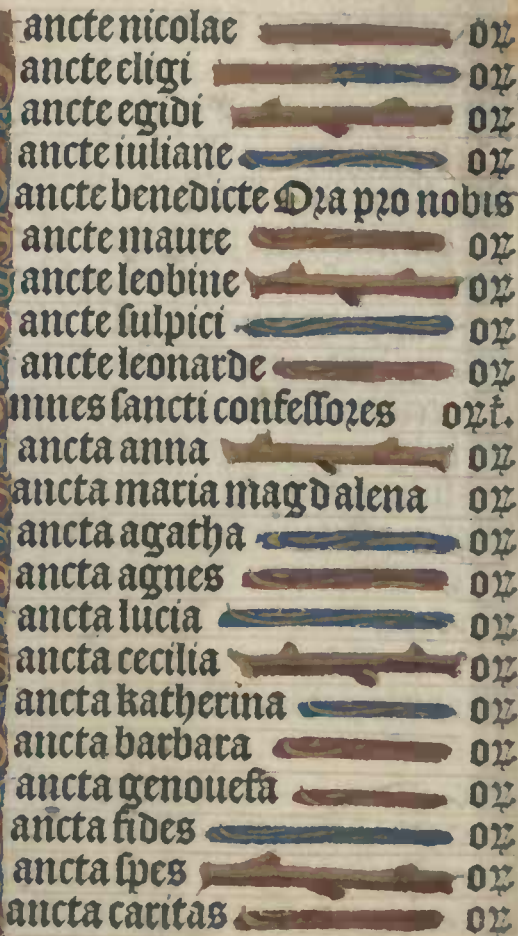 ancte nicolae or
ancte eligi or
ancte egidi or
ancte iuliane or
ancte benedicte Ora pro nobis
ancte maure or
ancte leobine or
ancte sulpici or
ancte leonarde or
mnes sancti confessores ort.
ancta anna or
ancta maria magdalena or
ancta agatha or
ancta agnes or
ancta lucia or
ancta cecilia or
ancta katherina or
ancta barbara or
ancta genouefa or
ancta fides or
ancta spes or
ancta caritas or